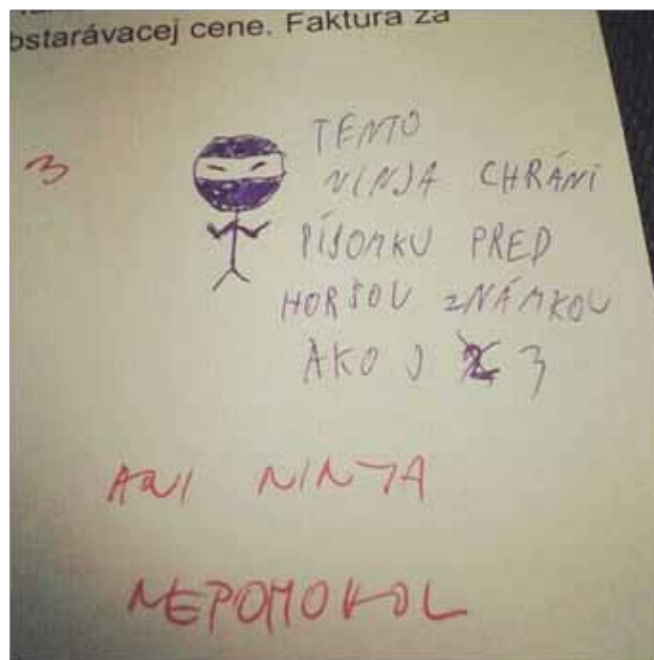 obstarávacej cene. Faktúra za
3
TENTO
NINJA CHRÁNI
PÍSOMKU PRED
HORŠOU ZNÁMKOU
AKO 3
ANI NINJA
NEPOMOHOL